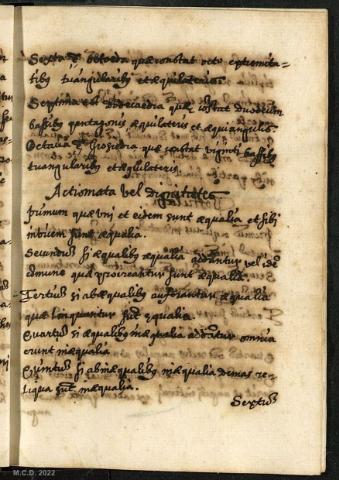 Sexta est octoedra quæ constat octo extremita-
tibus triangularibus et æquilateris.
Septima est dodecaedra quæ constat duodecim
bassibus pentagonis æquilateris et æquiangulis.
Octaua est Icosiedra quæ constat viginti bassibus
triangularibus et æquilateris.
Actiomata vel dignitates
primum quæ vni et eidem sunt æqualia et sibi
inuicem sunt æqualia.
Secundus si æqualibus æqualia addantur vel
comune quæ procreantur sunt æqualia.
Tertius si ab æqualibus auferantur æqualia
quæ linquuntur sunt æqualia.
Quartus si æqualibus inæqualia addantur omnia
erunt inæqualia.
Quintus si ab inæqualibus inæqualia demas re-
liqua sunt inæqualia.
Sextus
M.C.D. 2022